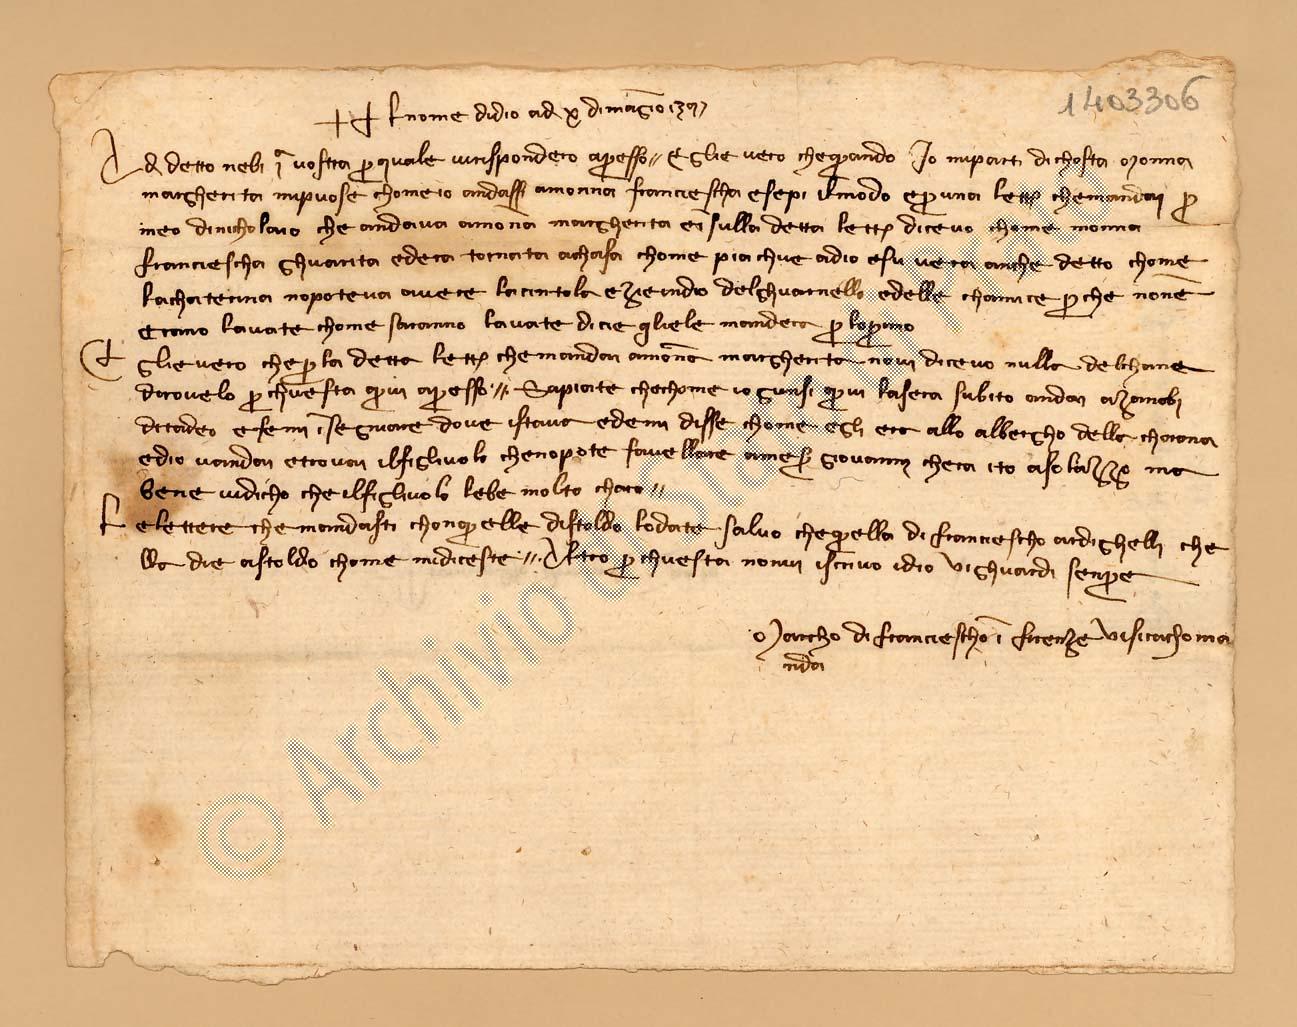 1403306
Al nome didio ad x di magio 1397
Ad detto nebi 1ª vostra p quale virispondero apresso // Eglie vero che quando Io miparti dichosta Monna
margherita mipuose chomeio andassi amonna franciescha esepi ilmodo e p una lettª chemandai p
meo dinicholaio che andava amona margherita e i sulla detta lettª dicevo chome monna
franciescha ghuarita edera tornata achasa chome piachue adio esu vera anche detto chome
lachaterina nopoteva avere lacintola edelghuarnello edelle chamice p che none
erano lavate chome saranno lavate dicie gliele mandera p lo primo
Eglie vero che p la detta lettª chemandai amona margherita novi dicevo nulla delchane
dirovelo p chuesta qui apresso // Sapiate chechome io giunsi qui lasera subito andai azanobi
ditadeo efemi insegniare dove istava edemi disse chome egli era allo albergho della chorona
edio vandai etrovai ilfiglivolo chenopote favellare amess giovanni chera ito asolazzo ma
bene vidicho che ilfiglivolo lebe molto charo //
Le lettere che mandasti chonquelle distoldo lodate salvo chequella di franciescho ardighelli che
lla die astoldo chome midiceste // Altro p chuesta nonvi iscrivo idio vi ghuardi senpre
Marcho di franciescho i firenze visirachoma
nda
© Archivio di Stato di Prato